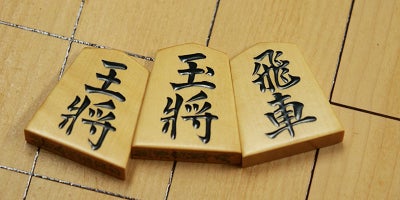 王将
玉将
飛車